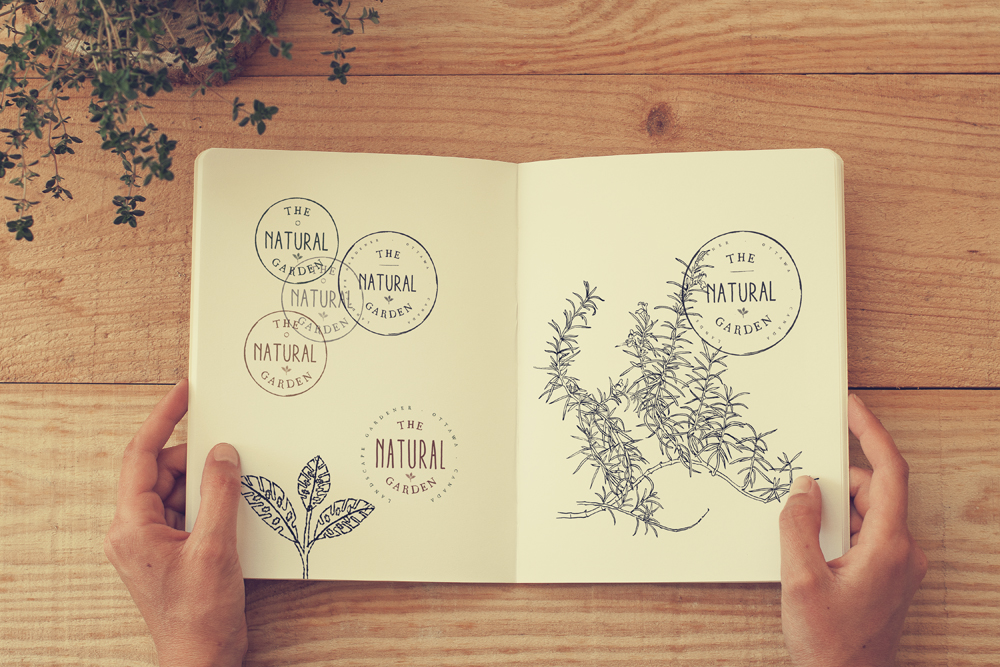 THE
NATURAL
GARDEN
THE
NATURAL
GARDEN
THE
NATURAL
GARDEN
THE
NATURAL
GARDEN
LANDSCAPE GARDENER · OTTAWA · CANADA
THE
NATURAL
GARDEN
THE
NATURAL
GARDEN